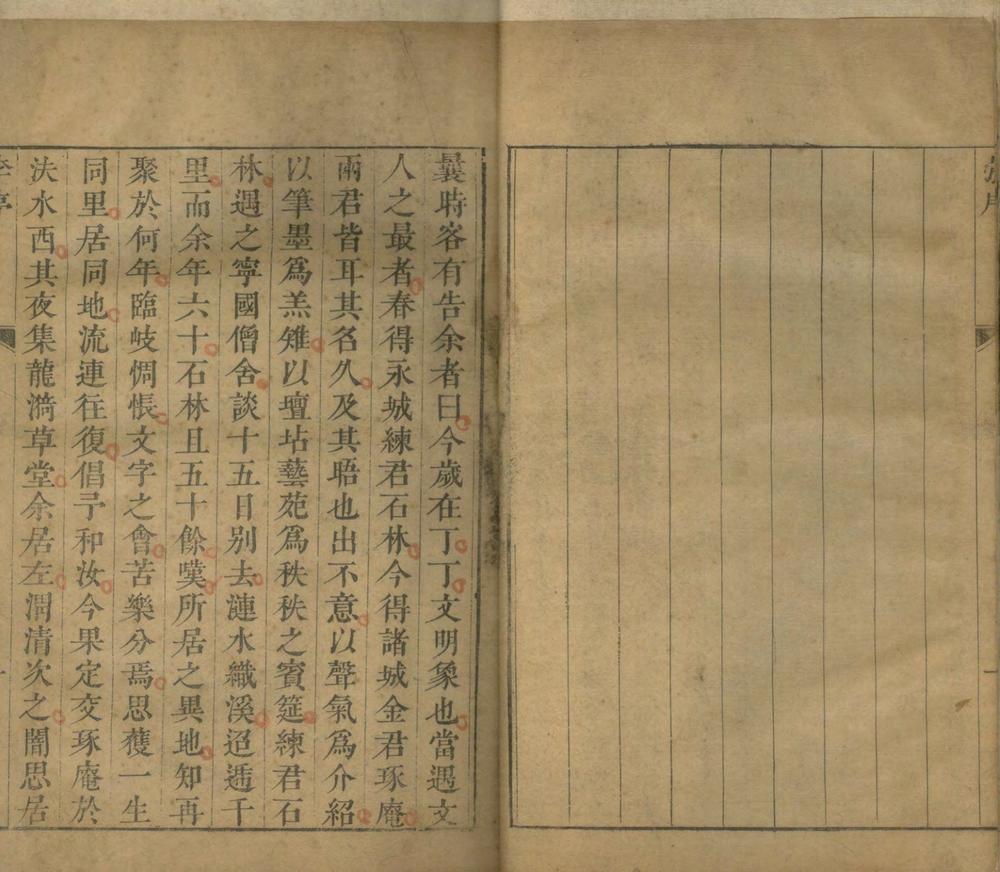 曩時客有告余者曰今歲在丁丁文明象也當遇文
人之最者春得永城練君石林今得諸城金君琢庵
兩君皆耳其名久及其晤也出不意以聲氣爲介紹
以筆墨爲羔雉以壇坫藝苑爲秩秩之賓筵練君石
林遇之寧國僧舍談十五日别去漣水織溪迢遞千
里而余年六十石林且五十餘嘆所居之異地知再
聚於何年臨岐惆悵文字之會苦樂分焉思獲一生
同里居同地流連往復倡予和汝今果定交琢庵於
決水西其夜集龍漪草堂余居左潤清次之闇思居